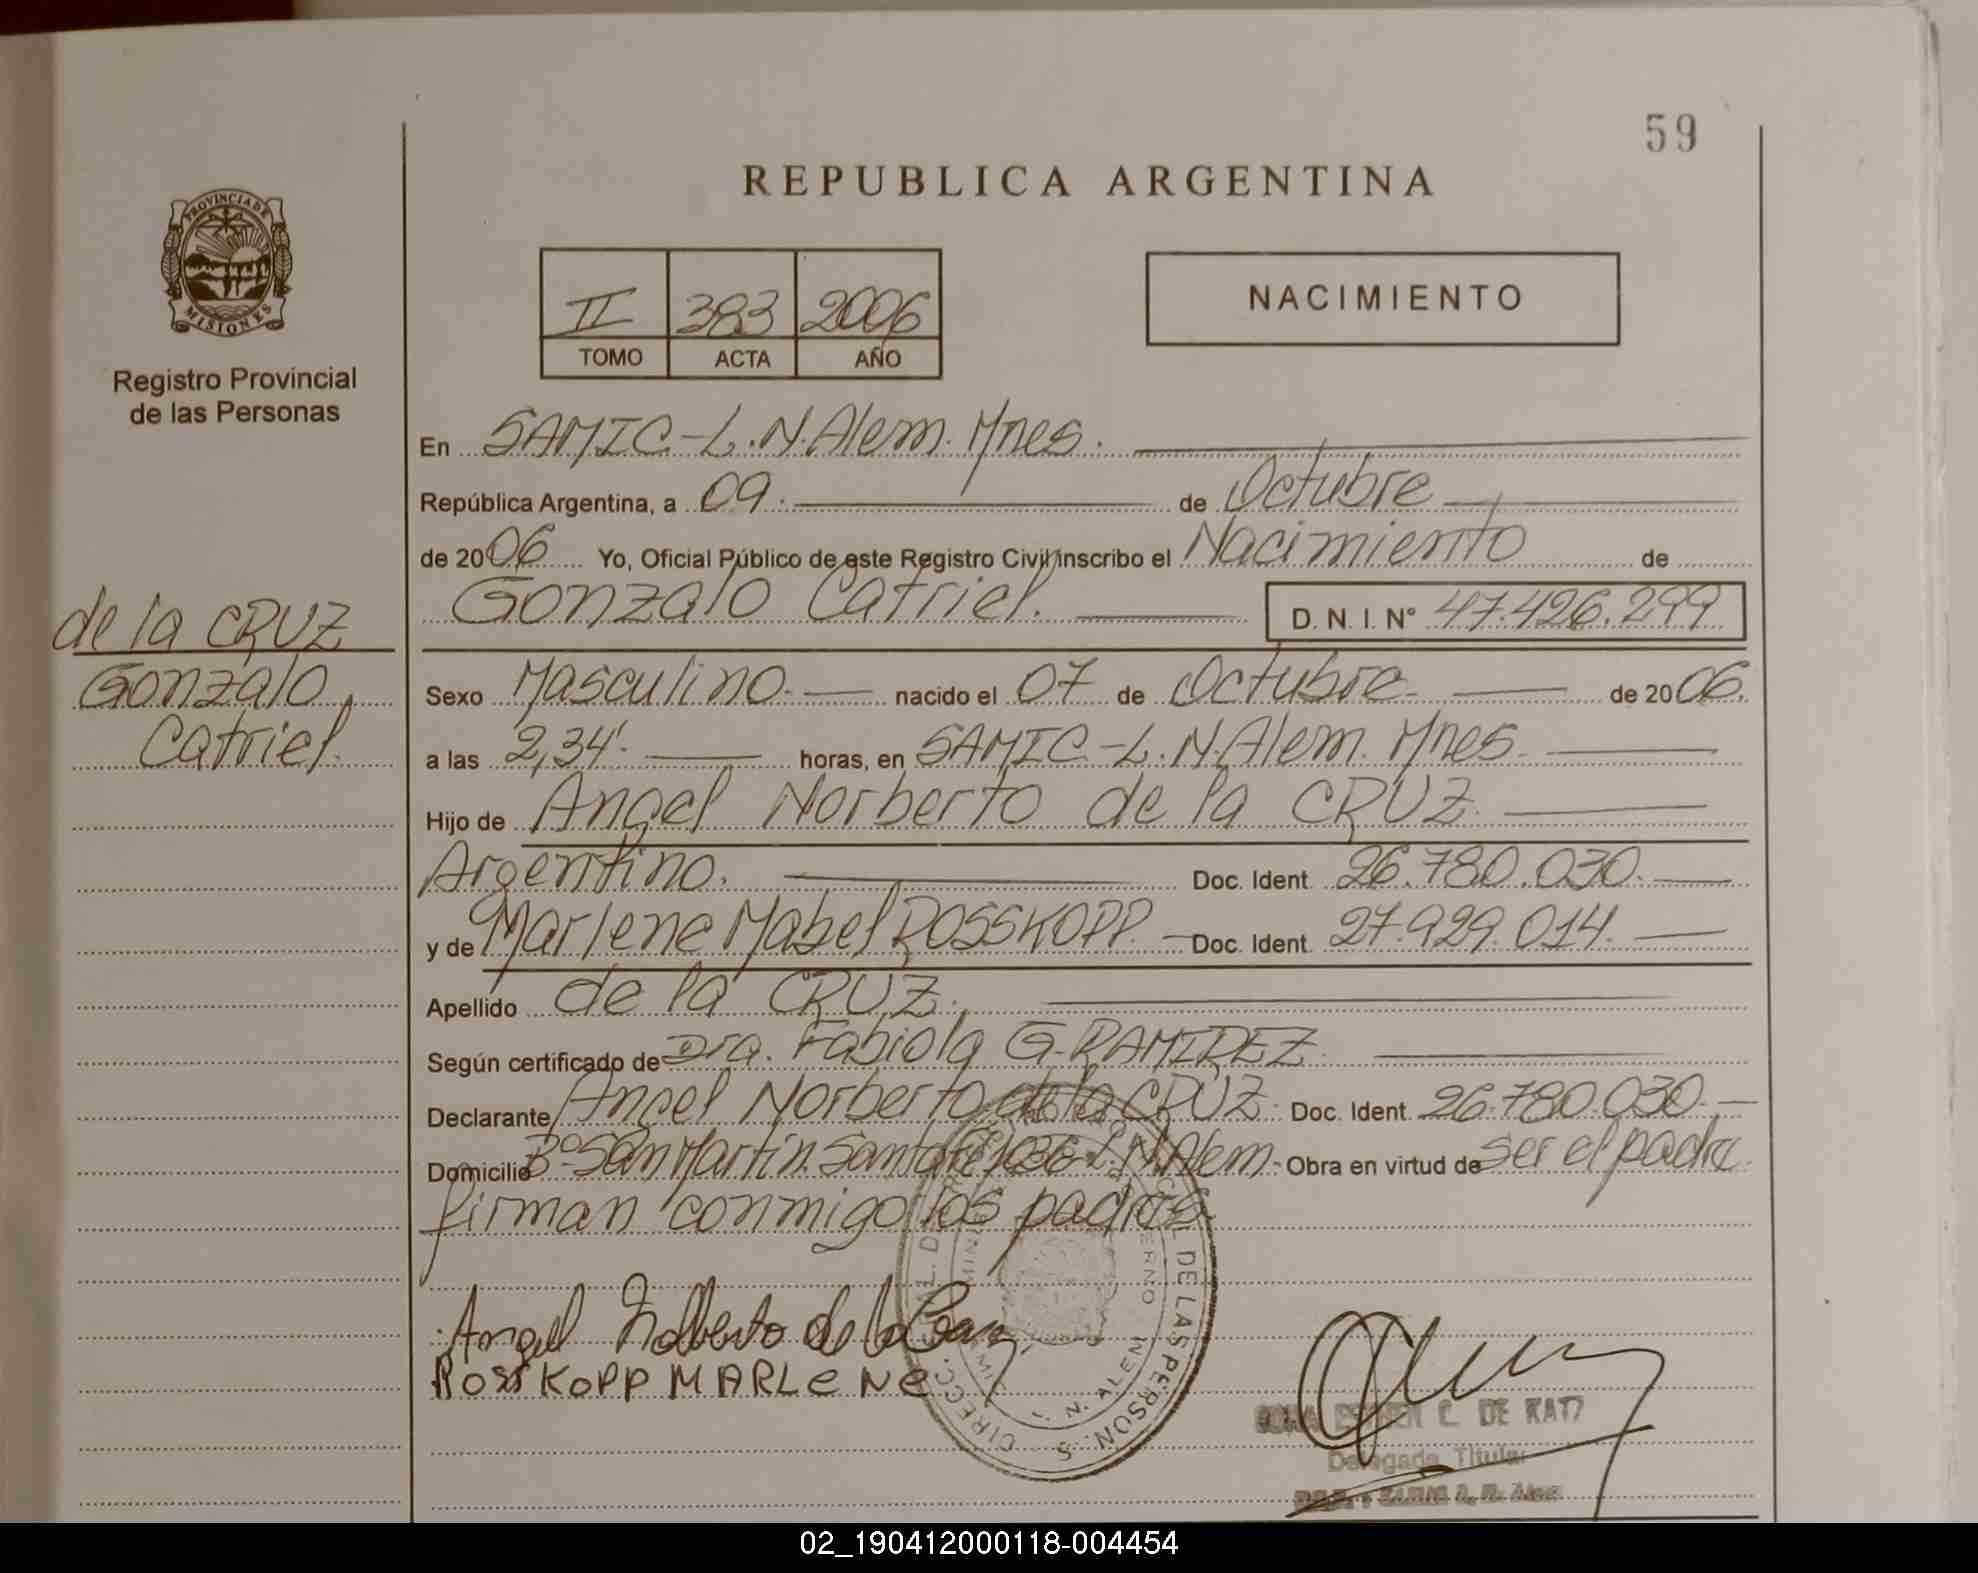 59
REPUBLICA ARGENTINA
PROVINCIA DE
MISIONES
Registro Provincial
de las Personas
II 383 2006
TOMO ACTA AÑO
NACIMIENTO
En SAMIC-L.N.Alem. Mnes.
República Argentina, a 09. de Octubre
de 2006 Yo, Oficial Público de este Registro Civil inscribo el Nacimiento de
Gonzalo Catriel. D. N. I. N° 47.426.299
de la CRUZ
Gonzalo
Catriel.
Sexo Masculino. nacido el 07 de Octubre. de 2006.
a las 2,34'. horas, en SAMIC-L.N.Alem. Mnes.
Hijo de Angel Norberto de la CRUZ.
Argentino. Doc. Ident. 26.780.030.
y de Marlene Mabel ROSSKOPP. Doc. Ident. 27.929.014.
Apellido de la CRUZ.
Según certificado de Dra. Fabiola G. RAMIREZ.
Declarante Angel Norberto de la CRUZ. Doc. Ident. 26.780.030.
Domicilio B° San Martin. Santa Fe 1036 L.N.Alem. Obra en virtud de ser el padre
firman conmigo los padres
Angel Norberto de la Cruz
ROSSKOPP MARLENE
DE LAS PERSON S
DIRECC.
N. ALEM
ESTHER C. DE KATZ
Delegada Titular
02_190412000118-004454